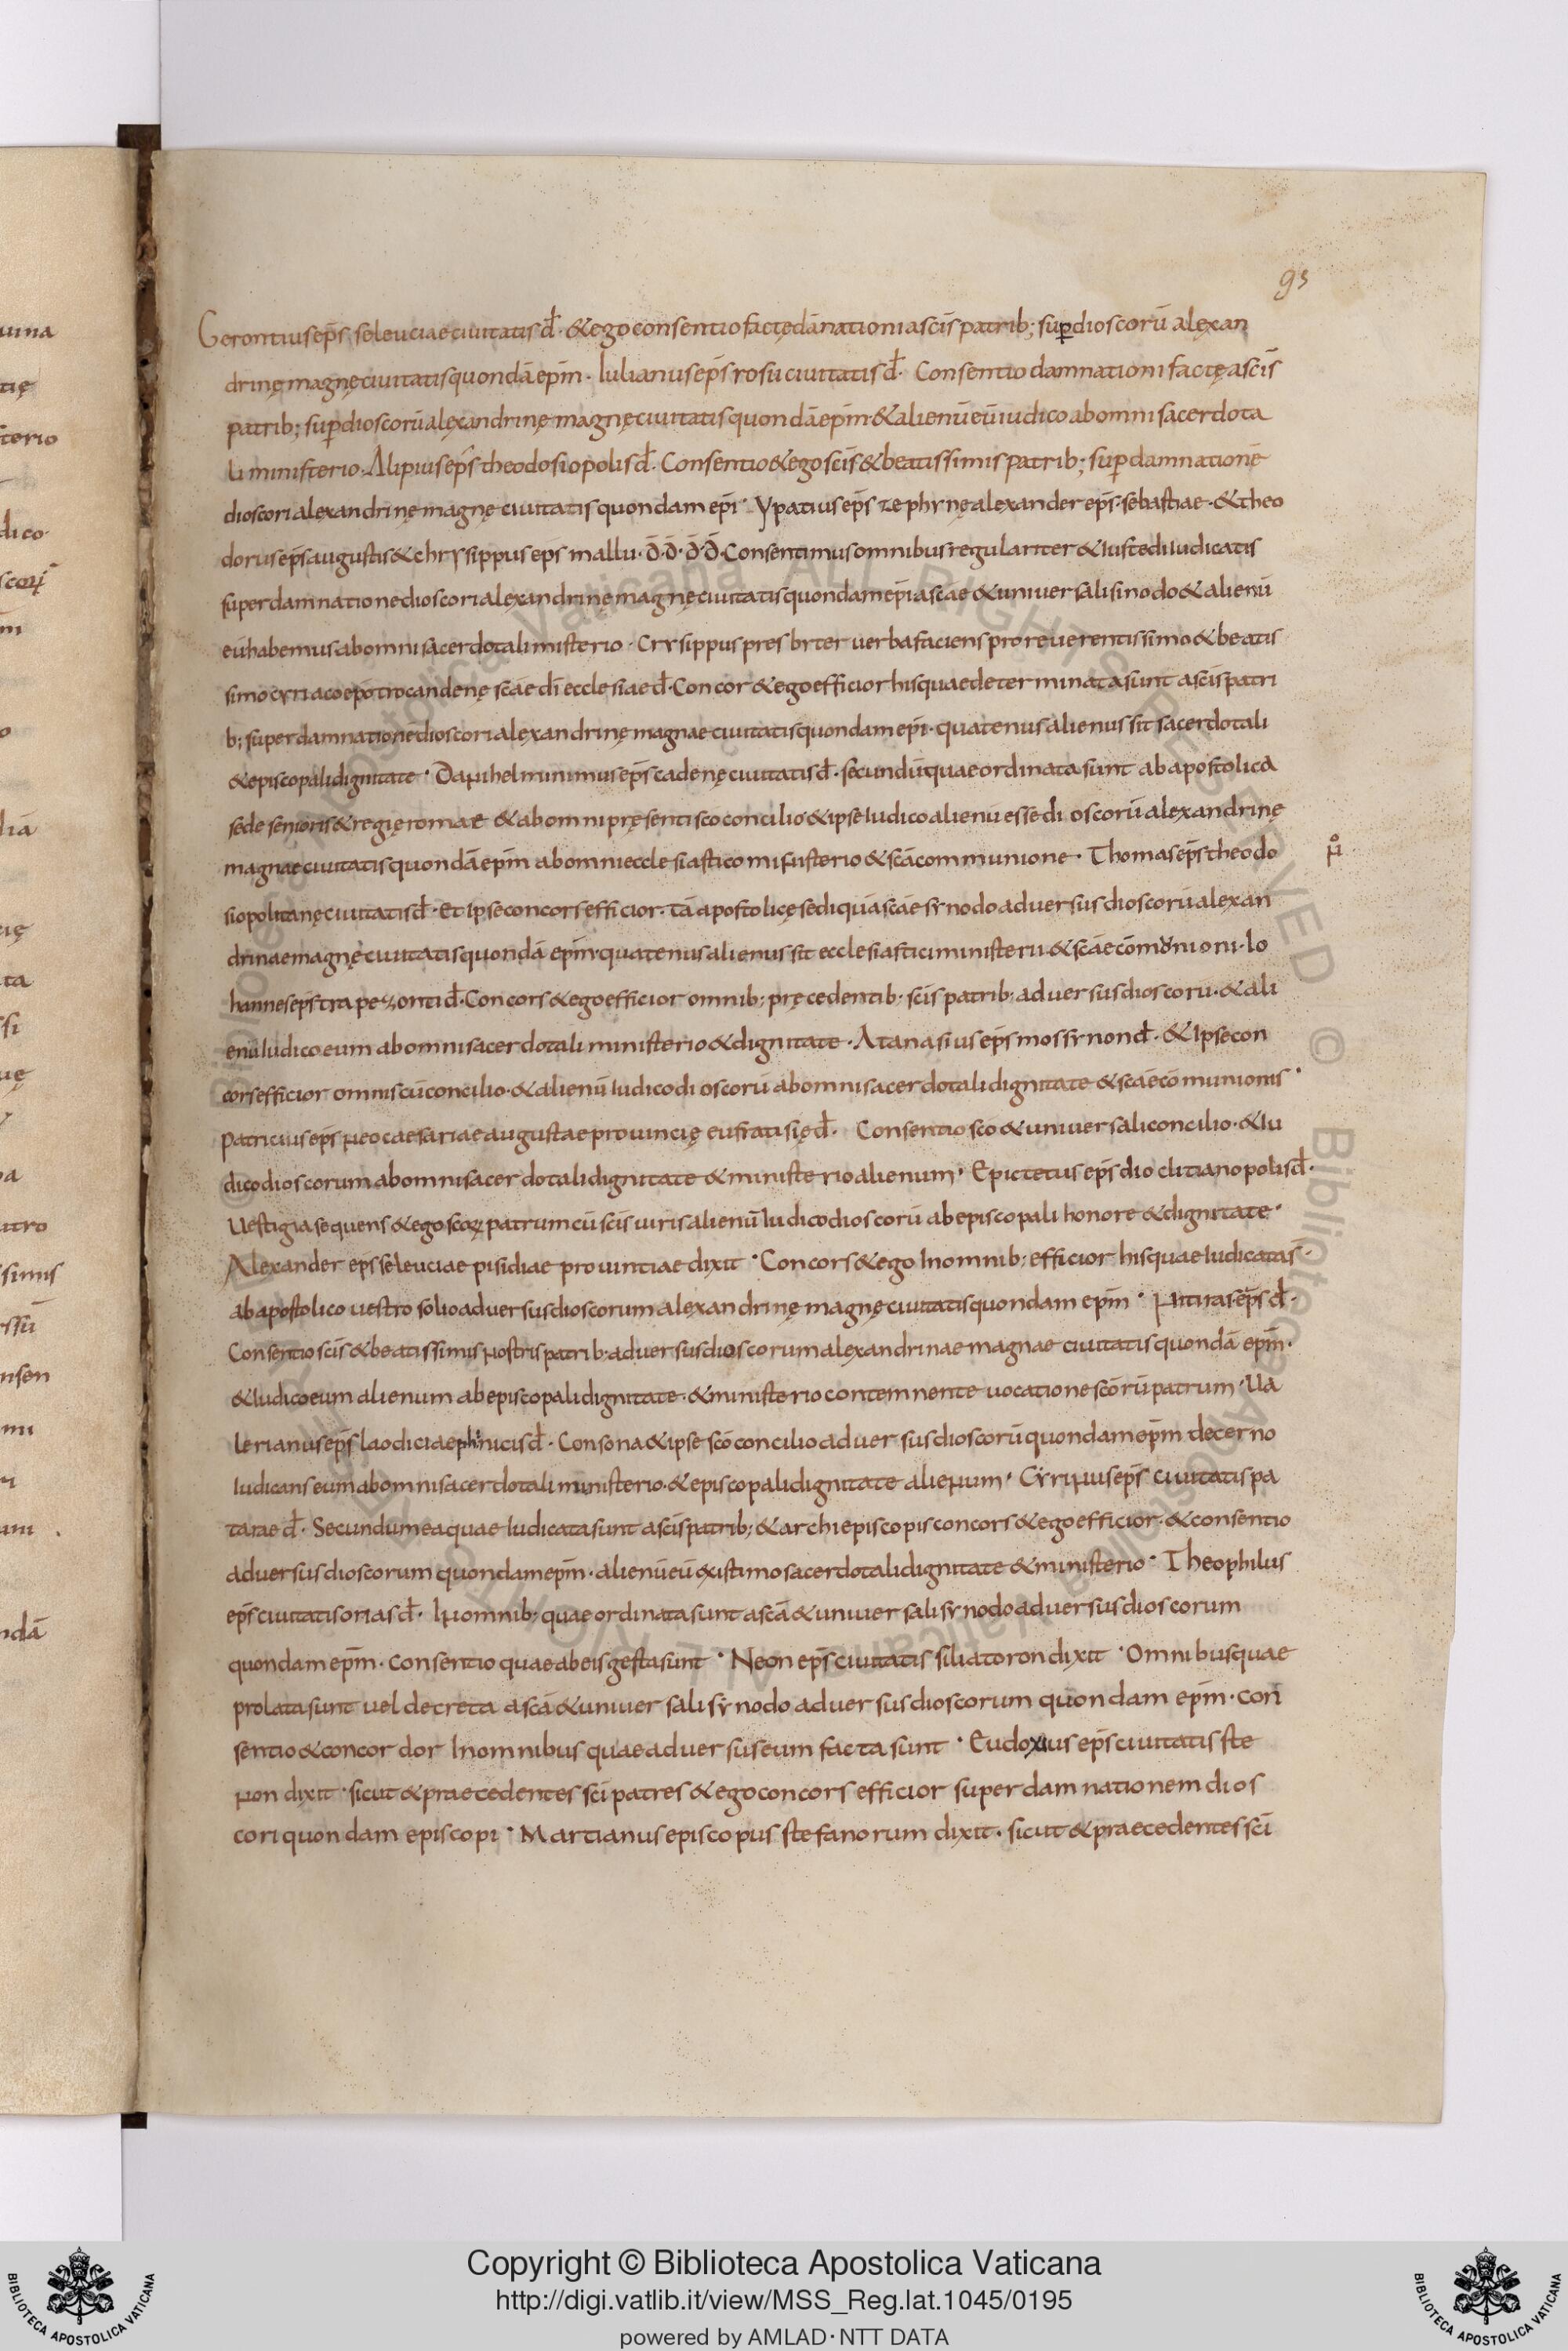 93
Gerontius ep̄s seleuciae ciuitatis đ· & ego consentio factę dānationi a sc̄is patrib; sup dioscorū alęxan
drinę magnę ciuitatis quondā ep̄m· Iulianus ep̄s rosu ciuitatis đ· Consentio damnationi factę a sc̄is
patrib; sup dioscorū alęxandrinę magnę ciuitatis quondā ep̄m· & alienū eū iudico ab omni sacerdota
li ministerio· Alipius ep̄s theodosiopolis đ· Consentio & ego sc̄is & beatissimis patrib; sup damnationē
dioscori alexandrinę magnę ciuitatis quondam ep̄i· Ypatius ep̄s zephyrnę alexander ep̄s sebastiae· & theo
dorus ep̄s augustis & chrysippus ep̄s mallu· đ· đ· đ· đ· Consentimus omnibus regulariter & iuste diiudicatis
super damnatione dioscori alexandrinę magnę ciuitatis quondam ep̄i a sc̄ae & uniuersali sinodo & alienū
eū habemus ab omni sacerdotali misterio· Crysippus presbyter uerba faciens pro reuerentissimo & beatis
simo cyriaco ep̄o trocandenę sc̄ae dī ecclesiae đ· Concor & ego efficior his quae determinata sunt a sc̄is patri
b; super damnatione dioscori alexandrinę magnae ciuitatis quondam ep̄i· quatenus alienus sit sacerdotali
& episcopali dignitate· Danihel minimus ep̄s cadenę ciuitatis đ· secundū quae ordinata sunt ab apostolica
sede senioris & regię romae & ab omni pręsenti sc̄o concilio & ipse iudico alienū esse dioscorū alexandrinę
magnae ciuitatis quondā ep̄m ab omni ecclesiastico ministerio & sc̄a communione· Thomas ep̄s theodo
siopolitanę ciuitatis đ· Et ipse concors efficior· tā apostolicę sedi quā sc̄ae synodo aduersus dioscorū alexan
drinae magnę ciuitatis quondā ep̄m· quatenus alienus sit ecclesiastici ministerii & sc̄ae com̄unioni· Io
hannes ep̄s trapezonti đ· Concors & ego efficior omnib; pręcedentib; sc̄is patrib; aduersus dioscorū· & ali
enū iudico eum ab omni sacerdotali ministerio & dignitate· Atanasius ep̄s mossynon đ· & ipse con
cors efficior omnis cū concilio· & alienū iudico dioscorū ab omni sacerdotali dignitate & sc̄ae cōmunionis·
Patricius ep̄s neocaesariae augustae prouincię eufratisię đ· Consentio sc̄o & uniuersali concilio· & iu
dico dioscorum ab omni sacerdotali dignitate & ministerio alienum· Epictetus ep̄s dioclitianopolis đ·
Uestigia sequens & ego sc̄oꝝ patrum cū sc̄is uiris alienū iudico dioscorū ab episcopali honore & dignitate·
Alexander eps seleuciae pisidiae prouintiae dixit· Concors & ego in omnib; efficior his quae iudicata s̄·
ab apostolico uestro solio aduersus dioscorum alexandrinę magnę ciuitatis quondam ep̄m· Niciras ep̄s đ·
Consentio sc̄is & beatissimis nostris patrib; aduersus dioscorum alexandrinae magnae ciuitatis quondā ep̄m·
& iudico eum alienum ab episcopali dignitate· & ministerio contemnente uocatione sc̄orū patrum· Ua
lerianus ep̄s laodiciae phinicis đ· Consona & ipse sc̄o concilio aduersus dioscorū quondam ep̄m decerno
iudicans eum ab omni sacerdotali ministerio· & episcopali dignitate alienum· Cyrinus ep̄s ciuitatis pa
tarae đ· Secundum ea quae iudicata sunt a sc̄is patrib; & archiepiscopis concors & ego efficior· & consentio
aduersus dioscorum quondam ep̄m· alienū eū existimo sacerdotali dignitate & ministerio· Theophilus
ep̄s ciuitatis orias đ· In omnib; quae ordinata sunt a sc̄a & uniuersali synodo aduersus dioscorum
quondam ep̄m· consentio quae ab eis gesta sunt· Neon ep̄s ciuitatis siliatoron dixit· Omnibus quae
prolata sunt uel decreta a sc̄a & uniuersali synodo aduersus dioscorum quondam ep̄m· con
sentio & concordor in omnibus quae aduersus eum facta sunt· Eudoxius ep̄s ciuitatis ste
non dixit· sicut & praecedentes sc̄i patres & ego concors efficior super damnationem dios
cori quondam episcopi· Martianus episcopus stefanorum dixit· sicut & praecedentes sc̄i
Copyright © Biblioteca Apostolica Vaticana
http://digi.vatlib.it/view/MSS_Reg.lat.1045/0195
powered by AMLAD·NTT DATA
BIBLIOTECA APOSTOLICA VATICANA
BIBLIOTECA APOSTOLICA VATICANA